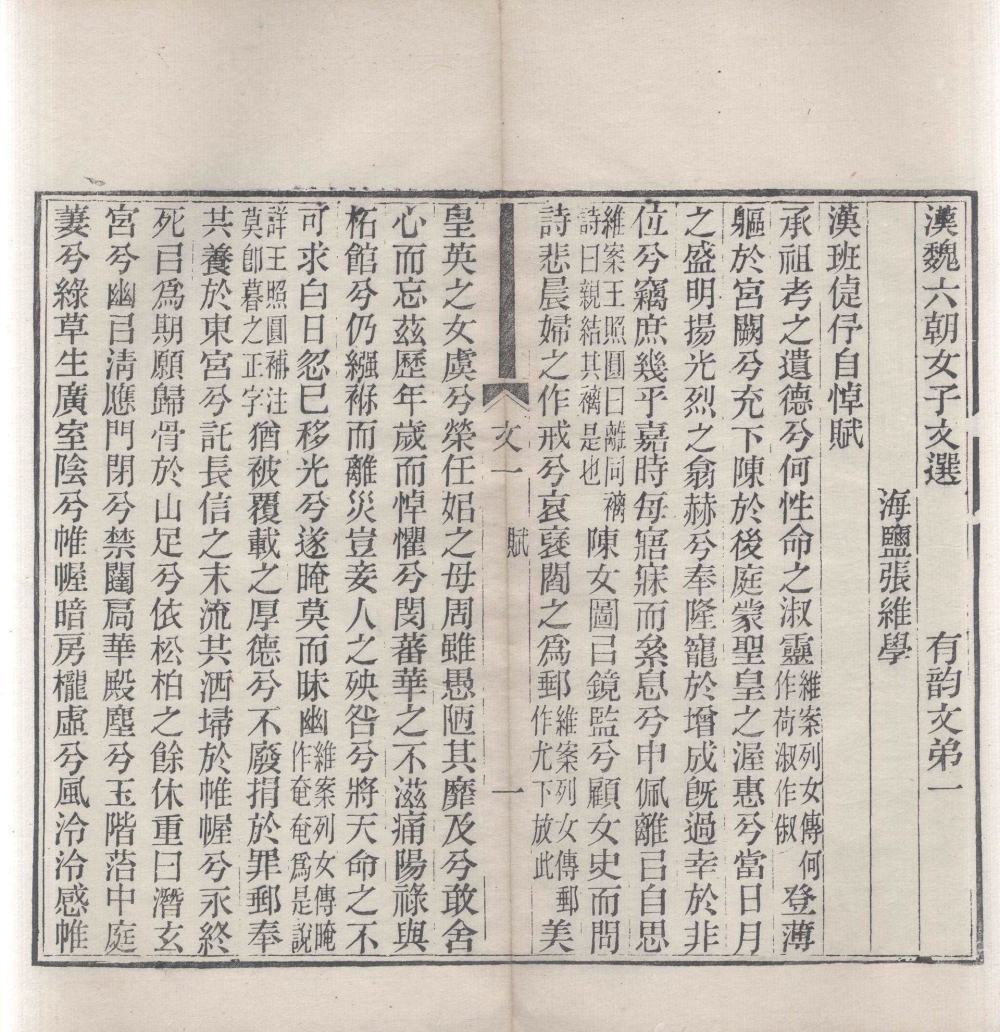 漢魏六朝女子文選　有韵文弟一
海鹽張維學
漢班倢伃自悼賦
承祖考之遺德兮何性命之淑靈維案列女傳何作荷淑作俶登薄
軀於宮闕兮充下陳於後庭蒙聖皇之渥惠兮當日月
之盛明揚光烈之翕赫兮奉隆寵於增成旣過幸於非
位兮竊庶幾乎嘉時每寤寐而絫息兮申佩離㠯自思
維案王照圓曰離同褵詩曰親結其褵是也陳女圖㠯鏡監兮顧女史而問
詩悲晨婦之作戒兮哀褒閻之爲郵維案列女傳郵作尤下放此美
文一　賦　一
皇英之女虞兮榮任姒之母周雖愚陋其靡及兮敢舍
心而忘茲歷年歲而悼懼兮閔蕃華之不滋痛陽祿與
柘館兮仍繈褓而離災豈妾人之殃咎兮將天命之不
可求白日忽已移光兮遂晻莫而昧幽維案列女傳晻作奄奄爲是說
詳王照圓補注莫卽暮之正字猶被覆載之厚德兮不廢捐於罪郵奉
共養於東宮兮託長信之末流共洒埽於帷幄兮永終
死㠯爲期願歸骨於山足兮依松柏之餘休重曰潛玄
宮兮幽㠯淸應門閉兮禁闥扃華殿塵兮玉階菭中庭
萋兮綠草生廣室陰兮帷幄暗房櫳虛兮風泠泠感帷